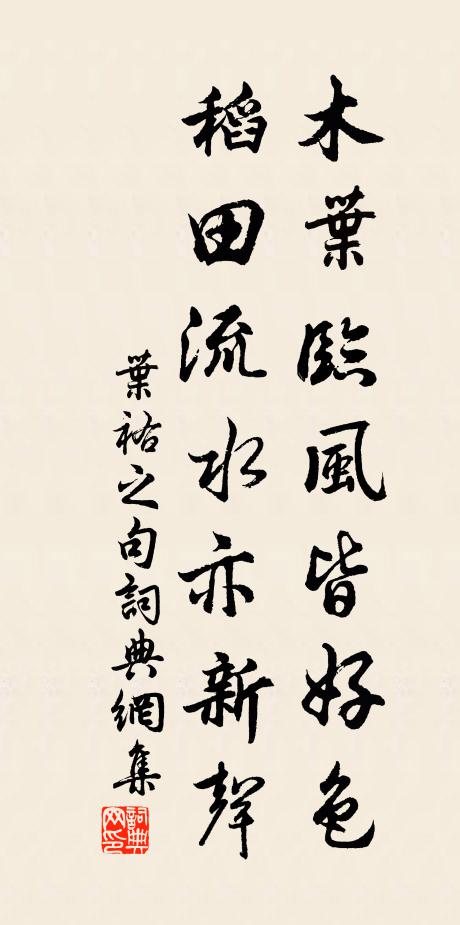 木葉臨風皆好色
稻田流水亦新聲
葉祐之句詞典網集
詞典網印